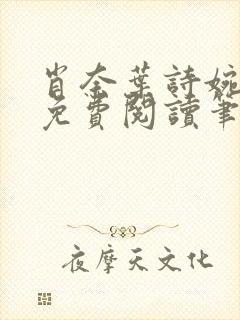 肖奈葉詩婉
免費閱讀筆
夜摩天文化